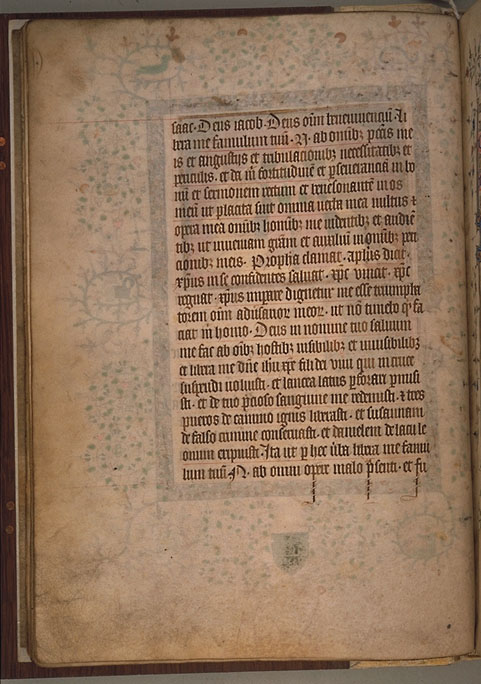 saac. Deus iacob. Deus oīm beneuiuenciū. Li
bera me famulum tuū. N. ab omībꝫ pctīs me
is et angustijs et tribulacionibꝫ necessitatibꝫ et
periculis. et da m̄ fortitudinē et pseueranciā in bo
nū et sermonem rectum et benesonantē in os
meū ut placita sint omnia uerba mea multis ⁊
opera mea omībꝫ homībꝫ me uidentibꝫ et audiē
tibꝫ ut inueniam grām et auxiliū in omībꝫ peti
cionibꝫ meis. Propha clamat. apłus dicit.
xp̄us in se confidentes saluat. xp̄c vincit. xp̄c
regnat. xp̄us impare dignetur me esse triumpha
torem oīm aduersarior meor. ut nō timebo qͥ fa
ciat m̄ homo. Deus in nomine tuo saluum
me fac ab oībꝫ hostibꝫ uisibilibꝫ et inuisibilibꝫ
et libera me dn̄e ihū xp̄e fili dei viui qui in cruce
suspendi uoluisti. et lancea latus pforari pmisi
sti. et de tuo p̄cioso sanguine me redemisti. ⁊ tres
pueros de camino ignis liberasti. et susannam
de falso crimine conseruasti. et danielem de lacu le
onum eripuisti. Ita ut p hec ūba libera me famu
lum tuū. N. ab omni opere malo p̄senti. et fu